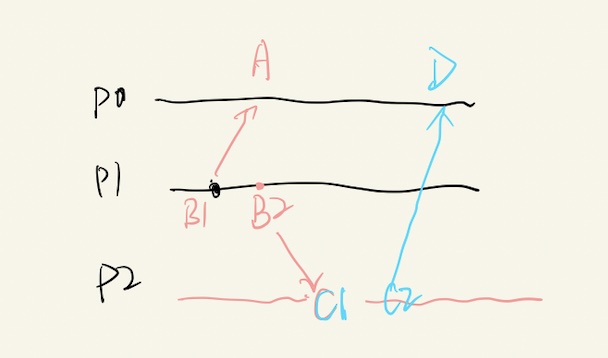 A D
P0
P1
B1 B2
P2 C1 C2